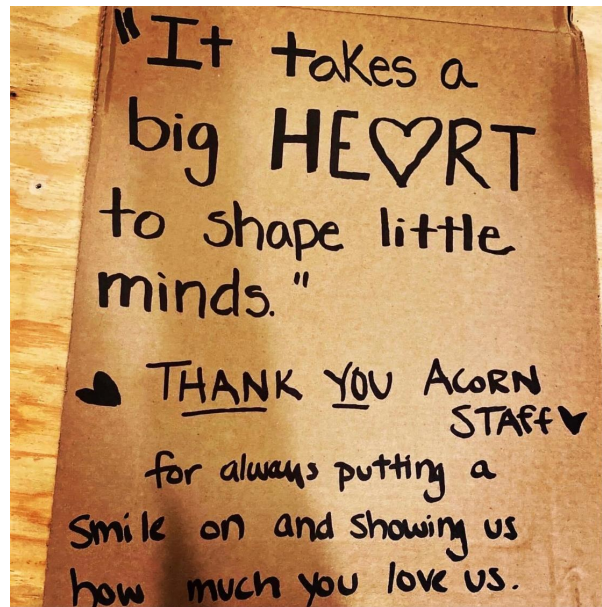 "It takes a
big HE♡RT
to shape little
minds."
♥ THANK YOU ACORN
STAFF ♥
for always putting a
smile on and showing us
how much you love us.